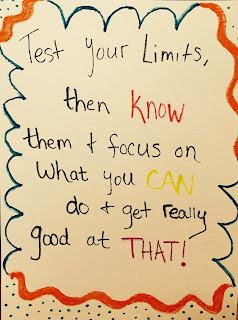 Test Your Limits,
then KNOW
them & focus on
What you CAN
do & get really
good at THAT!